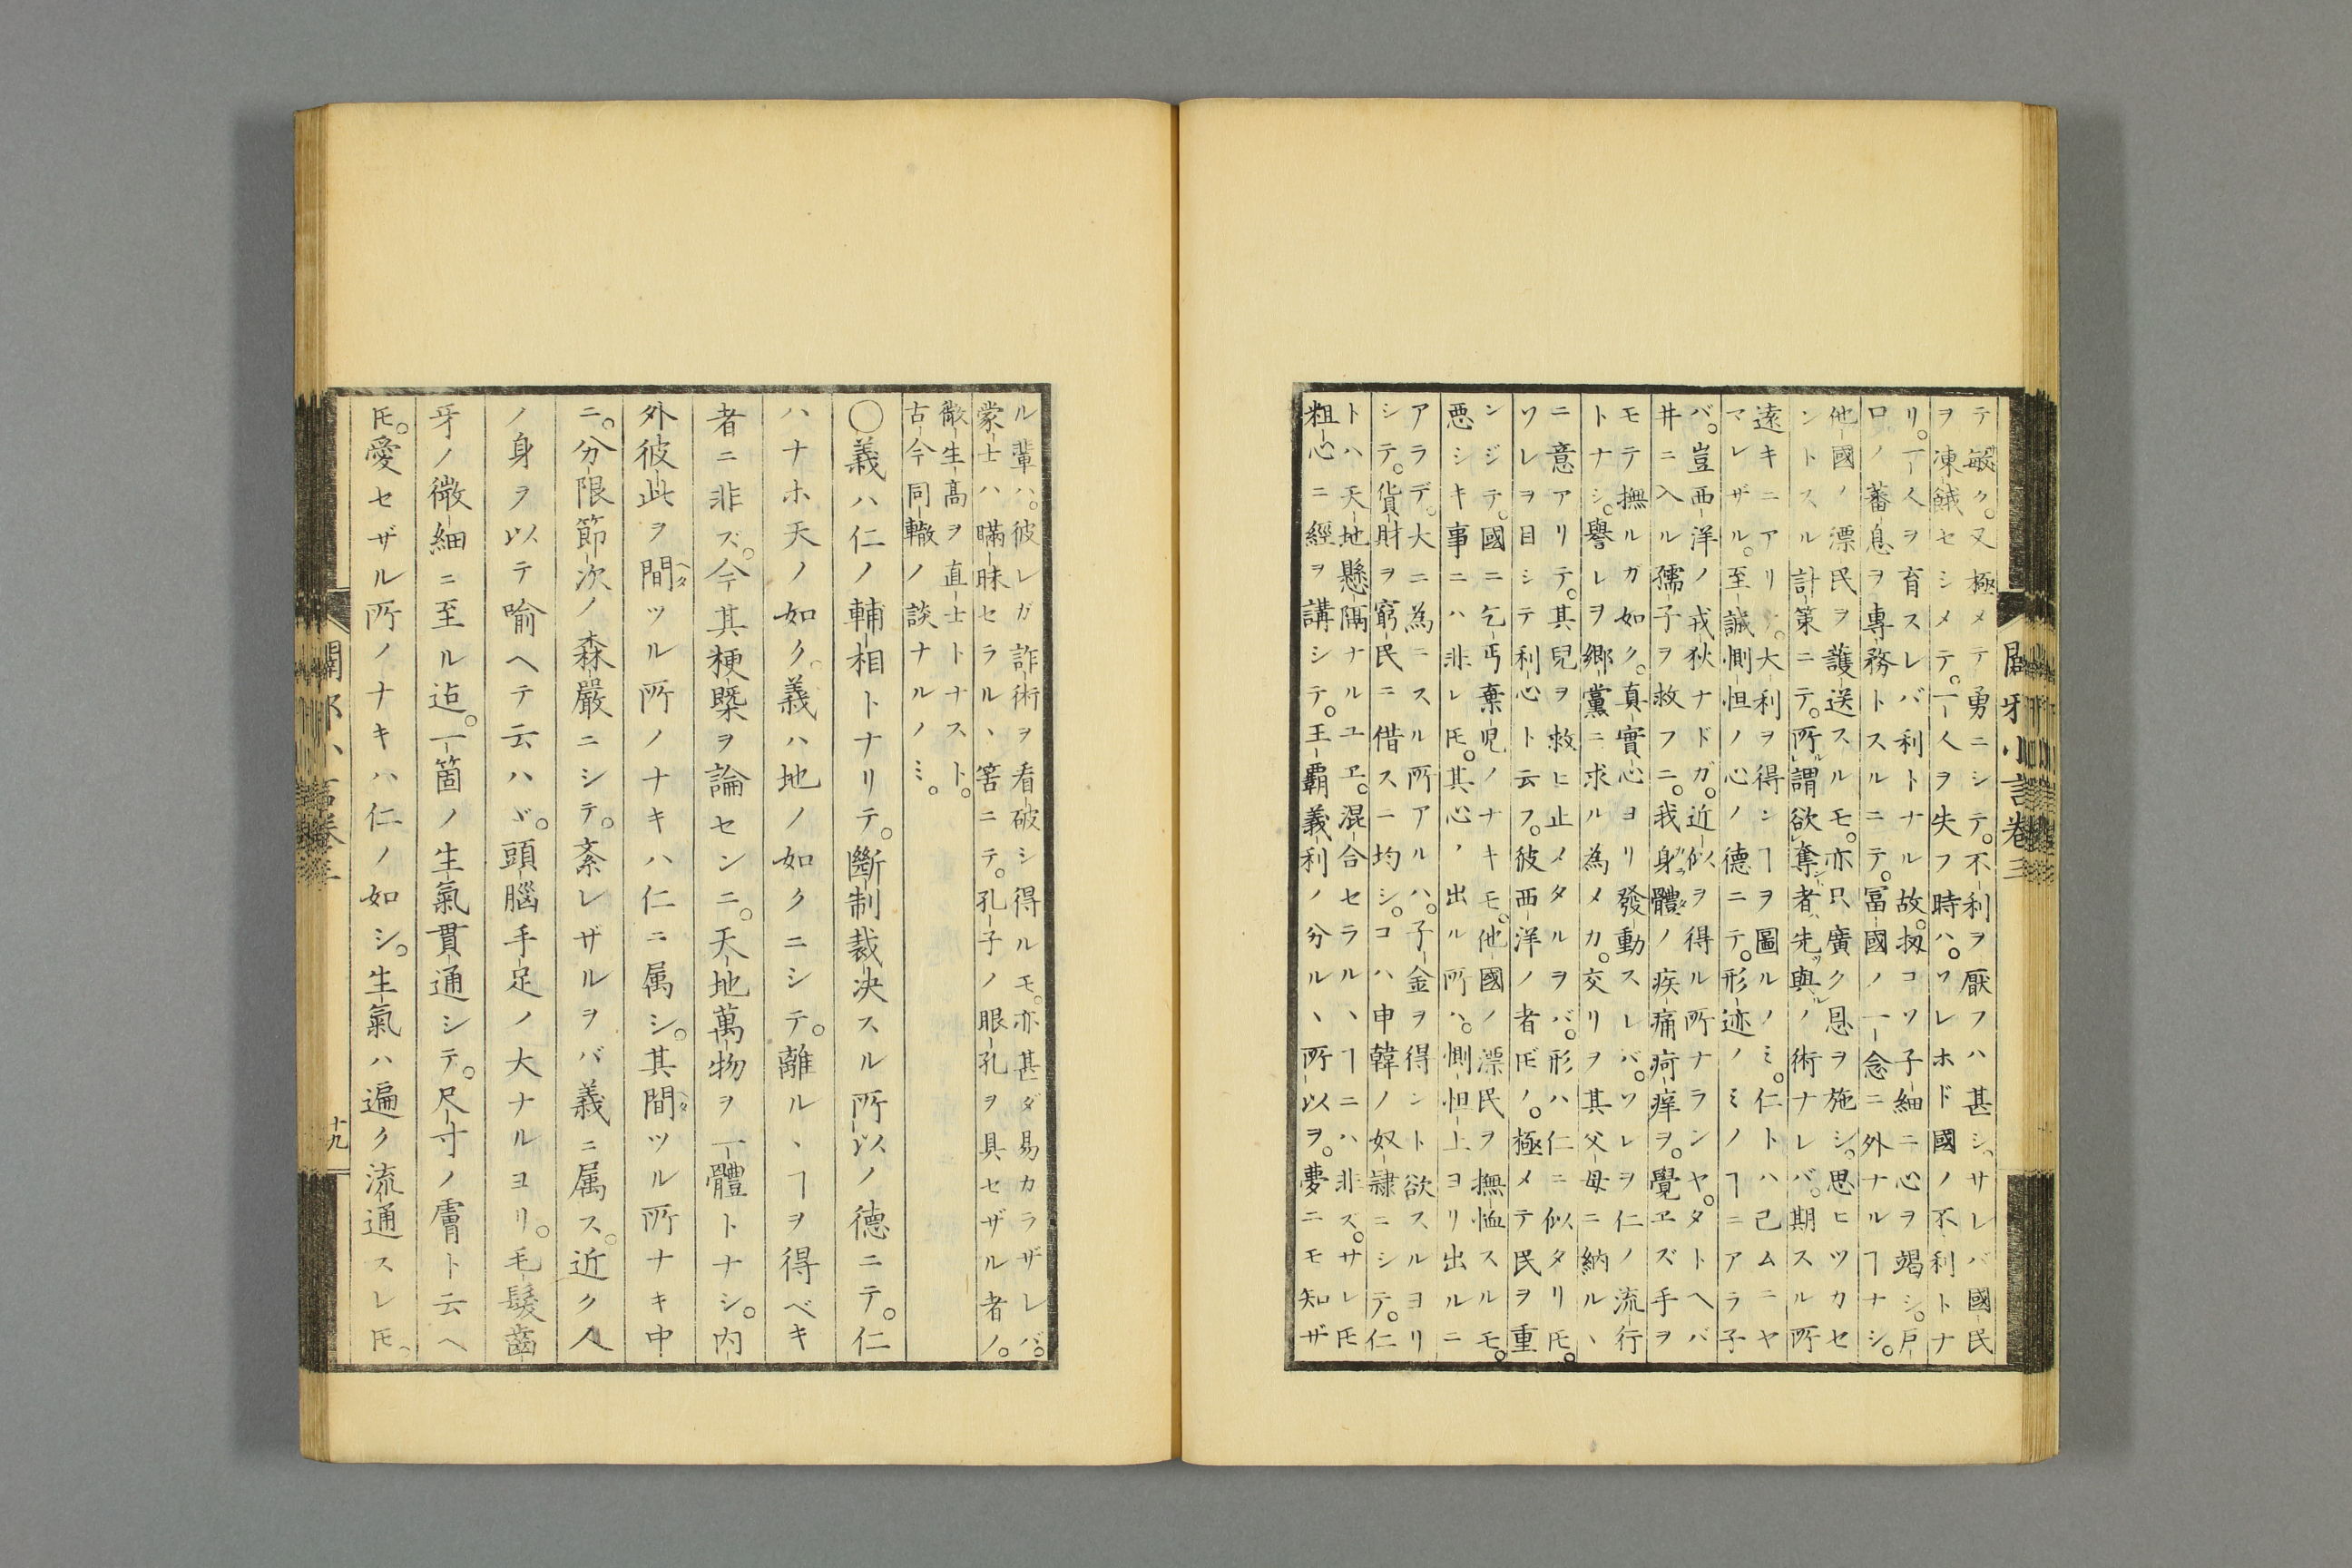 テ敏ク。又極メテ勇ニシテ。不利ヲ厭フハ甚シ。サレバ國民
ヲ凍餓セシメテ。一人ヲ失フ時ハ。ソレホド國ノ不利トナ
リ。一人ヲ育スレバ利トナル故。扨コソ子細ニ心ヲ竭シ。戸
口ノ蕃息ヲ專務トスルニテ。冨國ノ一念ニ外ナルヿナシ。
他國ノ漂民ヲ護送スルモ。亦只廣ク恩ヲ施シ。思ヒツカセ
ントスル計策ニテ。所謂欲奪者先與ノ術ナレバ。期スル所
遠キニアリ。大利ヲ得ンヿヲ圖ルノミ。仁トハ己ムニヤ
マレザル。至誠惻怛ノ心ノ德ニテ。形迹ノミノヿニアラ子
バ。豈西洋ノ戎狄ナドガ。近似ヲ得ル所ナランヤ。タトヘバ
井ニ入ル孺子ヲ救フニ。我身體ノ疾痛疴痒ヲ。覺ヱズ手ヲ
モテ撫ルガ如ク。真實心ヨリ發動スレバ。ソレヲ仁ノ流行
トナシ。譽レヲ郷黨ニ求ル為メカ。交リヲ其父母ニ納ルヽ
ニ意アリテ。其兒ヲ救ヒ止メタルヲバ。形ハ仁ニ似タリ𪜈。
ソレヲ目シテ利心ト云フ。彼西洋ノ者𪜈ノ。極メテ民ヲ重
ンジテ。國ニ乞丐棄児ノナキモ。他國ノ漂民ヲ撫恤スルモ。
惡シキ事ニハ非レ𪜈。其心ノ出ル所ハ。惻怛上ヨリ出ルニ
アラデ。大ニ為ニスル所アルハ。子金ヲ得ント欲スルヨリ
シテ。貨財ヲ窮民ニ借スニ均シ。コハ申韓ノ奴隷ニシテ。仁
トハ天地懸隔ナルユヱ。混合セラルヽヿニハ非ズ。サレ𪜈
粗心ニ經ヲ講シテ。王覇義利ノ分ルヽ所以ヲ。夢ニモ知ザ
ル輩ハ。彼レガ詐術ヲ看破シ得ルモ。亦甚ダ易カラザレバ。
蒙士ハ瞞昧セラルヽ筈ニテ。孔子ノ眼孔ヲ具セザル者ノ。
微生高ヲ直士トナスト。
古今同轍ノ談ナルノミ。
○義ハ仁ノ輔相トナリテ。斷制裁决スル所以ノ德ニテ。仁
ハナホ天ノ如ク。義ハ地ノ如クニシテ。離ルヽヿヲ得ベキ
者ニ非ズ。今其梗槩ヲ論センニ。天地萬物ヲ一體トナシ。内
外彼此ヲ間ツル所ノナキハ仁ニ属シ。其間ツル所ナキ中
ニ。分限節次ノ森嚴ニシテ。紊レザルヲバ義ニ属ス。近ク人
ノ身ヲ以テ喻ヘテ云ハヾ。頭腦手足ノ大ナルヨリ。毛髮齒
牙ノ微細ニ至ル迠。一箇ノ生氣貫通シテ。尺寸ノ膚ト云ヘ
𪜈。愛セザル所ノナキハ仁ノ如シ。生氣ハ遍ク流通スレ𪜈。
十九